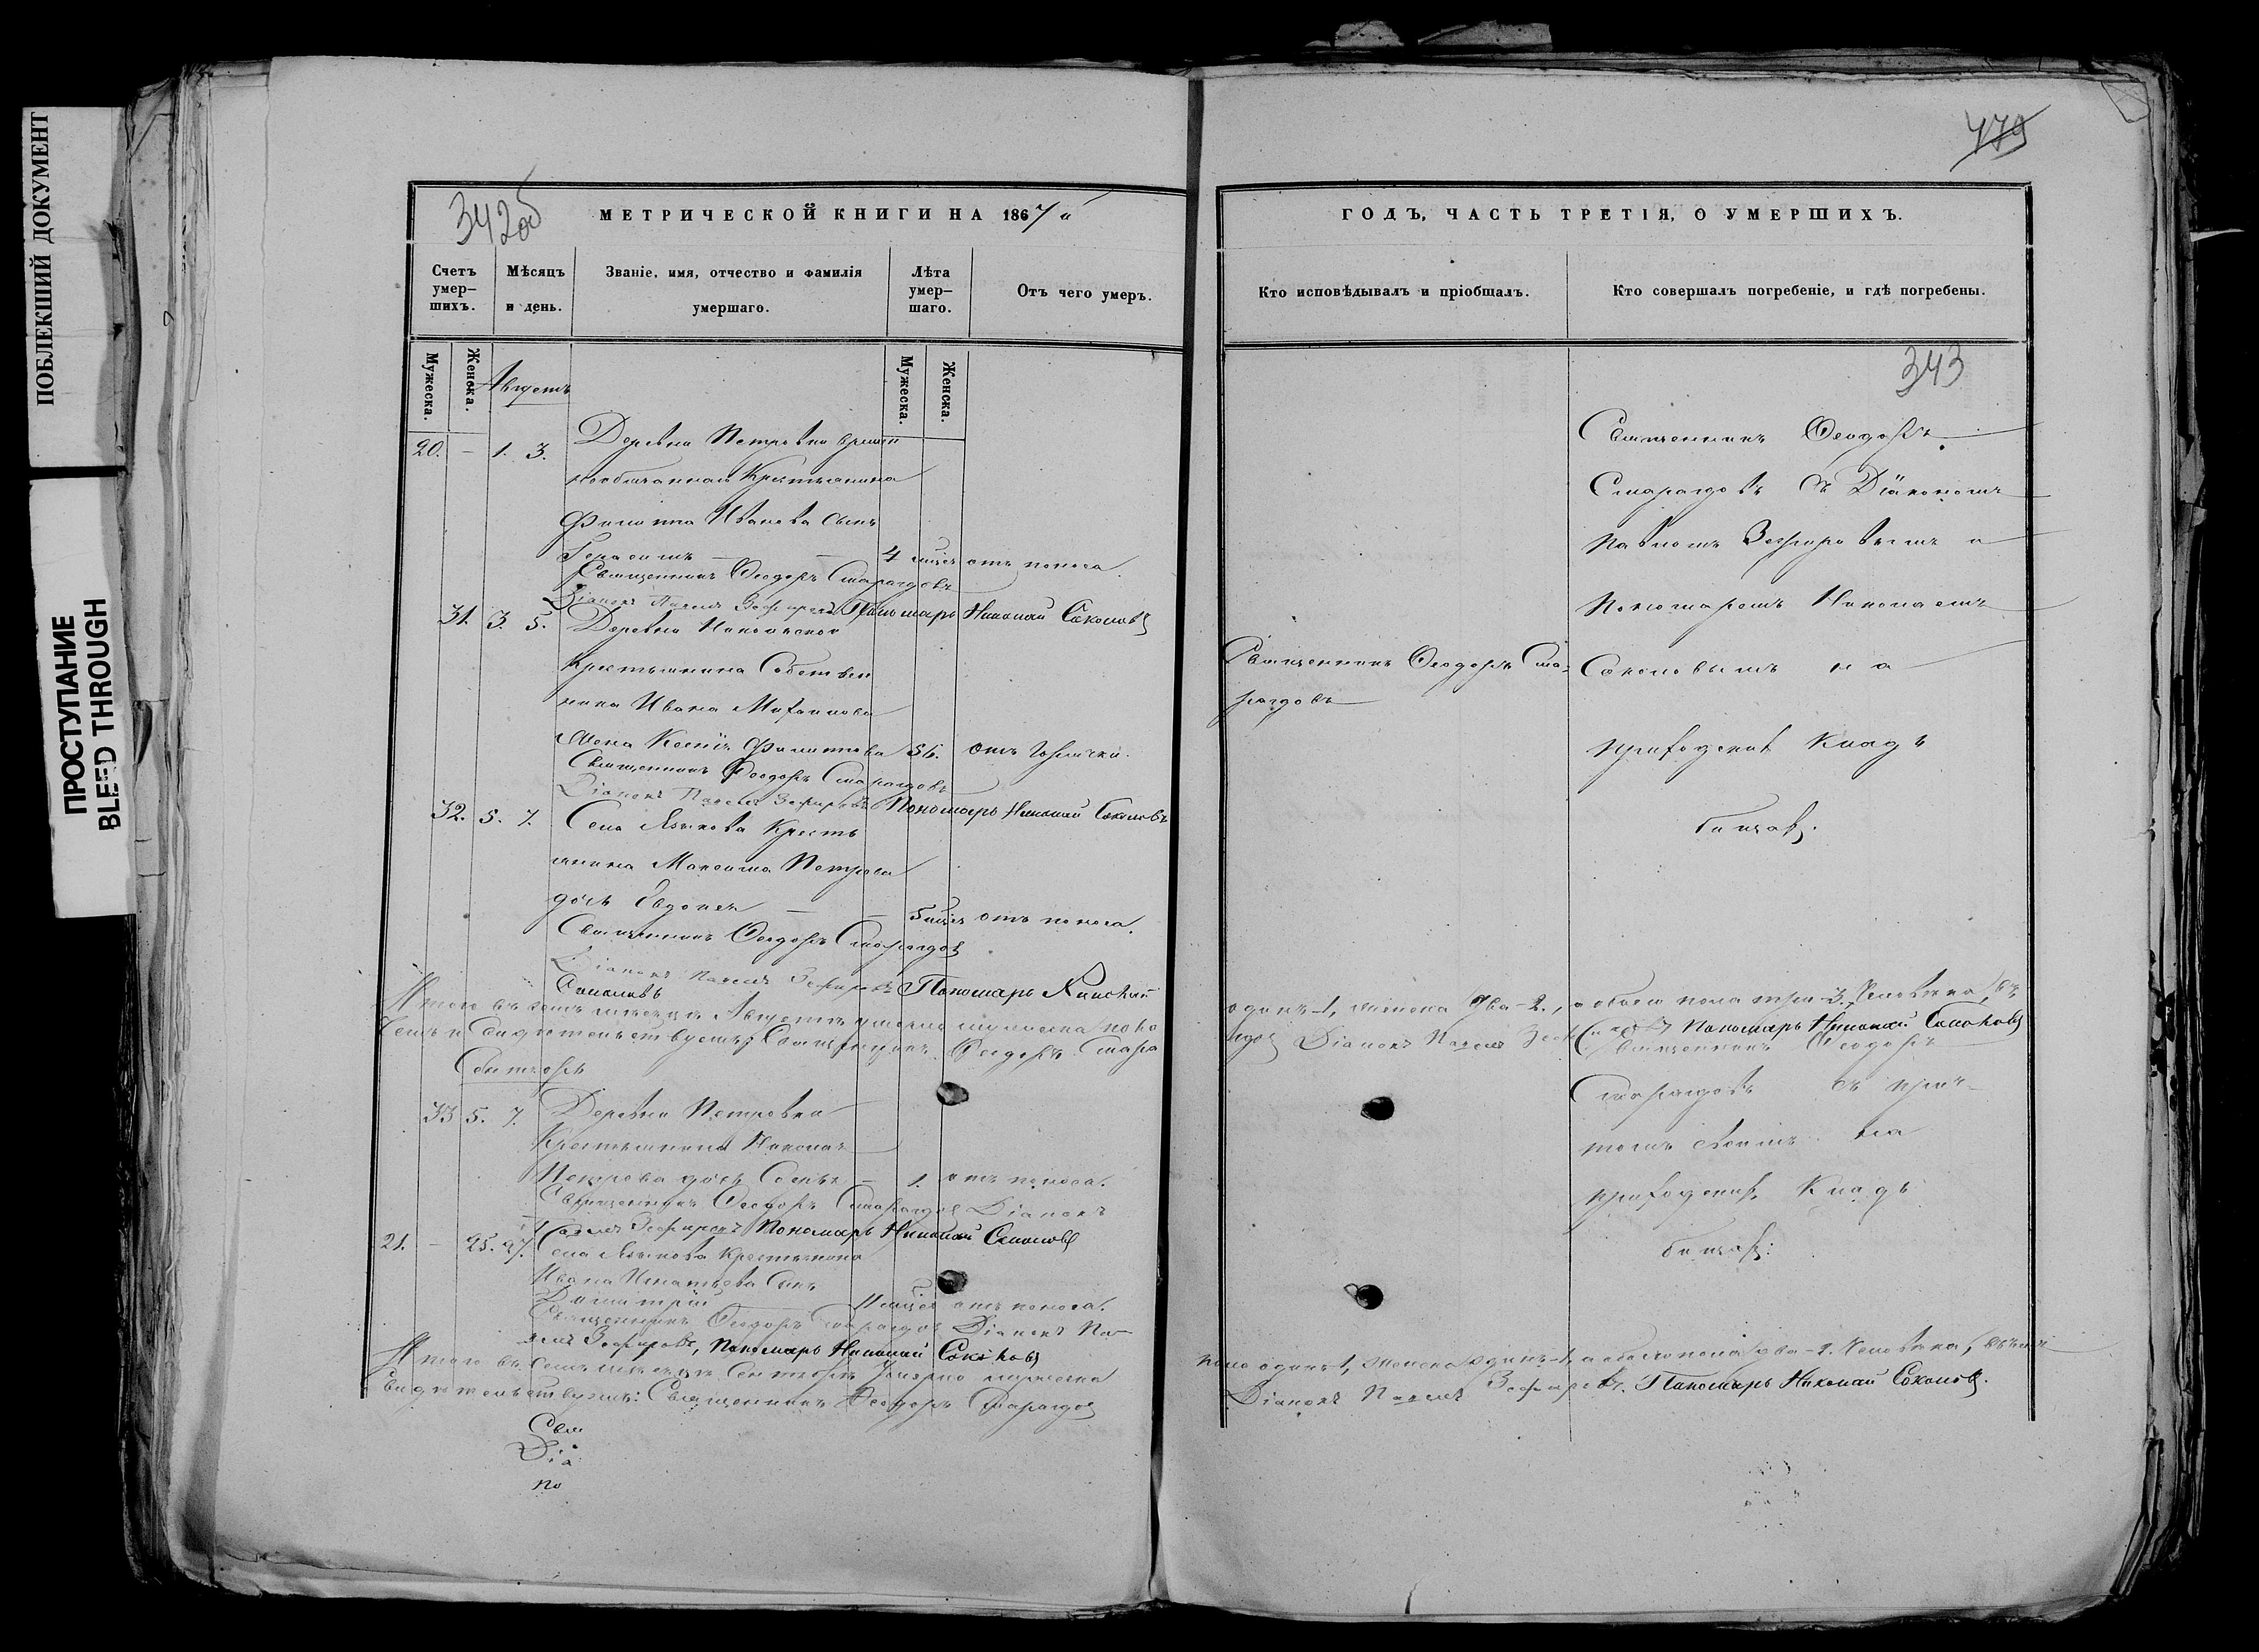 ПОБЛЕКШИЙ ДОКУМЕНТ
ПРОСТУПАНИЕ
BLEED THROUGH
342об
МЕТРИЧЕСКОЙ КНИГИ НА 1867
Счетъ умер-шихъ.
Мѣсяцъ и день.
Званіе, имя, отчество и фамилія умершаго.
Лѣта умер-шаго.
Отъ чего умеръ.
Мужеска.
Женска.
Мужеска.
Женска.
Августъ
20. – 1. 3. Деревни Петровки
Крестьянина
Филиппа Иванова сынъ
Герасимъ – – 4 мѣся отъ поноса.
Священникъ Ѳеодоръ Смарагдовъ
Діаконъ Павелъ Зефировъ Пономарь Николай Соколовъ
31. 3. 5. Деревни
Крестьянина Собствен
ника Ивана Михаилова
Жена Ксенія Филиппова 56. отъ горячки.
Священникъ Ѳеодоръ Смарагдовъ
Діаконъ Павелъ Зефировъ Пономарь Николай Соколовъ
32. 5. 7. Села Языкова Кресть
янина Максима Петрова
дочь Евдокія – – 5 мѣся отъ поноса.
Священникъ Ѳеодоръ Смарагдовъ
Діаконъ Павелъ Зефировъ Пономарь Николай
Соколовъ
Итого въ семъ мѣсяцѣ Августѣ умерло мужеска полу
чемъ и Свидѣтельствуемъ: Священникъ Ѳеодоръ Смара
Сентябрь
33 5. 7. Деревни Петровки
Крестьянина Николая
Петрова дочь Софья – 1. отъ поноса.
Священникъ Ѳеодоръ Смарагдовъ Діаконъ
Павелъ Зефировъ Пономарь Николай Соколовъ
21. – 25. 27. Села Языкова Крестьянина
Ивана Игнатьева сынъ
Димитрій 11 мѣся отъ поноса.
Священникъ Ѳеодоръ Смарагдовъ Діаконъ Па-
велъ Зефировъ, Пономарь Николай Соколовъ
Итого въ семъ мѣсяцѣ Сентябрѣ умерло мужеска
Свидѣтельствуемъ: Священникъ Ѳеодоръ Смарагдовъ
Свя
Діа
По
479
ГОДЪ, ЧАСТЬ ТРЕТІЯ, О УМЕРШИХЪ.
Кто исповѣдывалъ и пріобщалъ.
Кто совершалъ погребеніе, и гдѣ погребены.
343
Священникъ Ѳеодоръ
Смарагдовъ съ Діакономъ
Павломъ Зефировымъ и
Пономаремъ Николаемъ
Соколовымъ на
приходскомъ Клад
бищѣ.
Священникъ Ѳеодоръ Сма-
рагдовъ
одинъ-1, женска два-2., а обоего пола три-3. Человѣка, въ
гдовъ Діаконъ Павелъ Пономарь Николай Соколовъ
Священникъ Ѳеодоръ
Смарагдовъ съ прич
томъ своимъ на
приходскомъ Клад
бищѣ.
пола одинъ-1, женска одинъ-1, а обоего пола два-2. Человѣка, въ чемъ
Діаконъ Павелъ Зефировъ. Пономарь Николай Соколовъ.